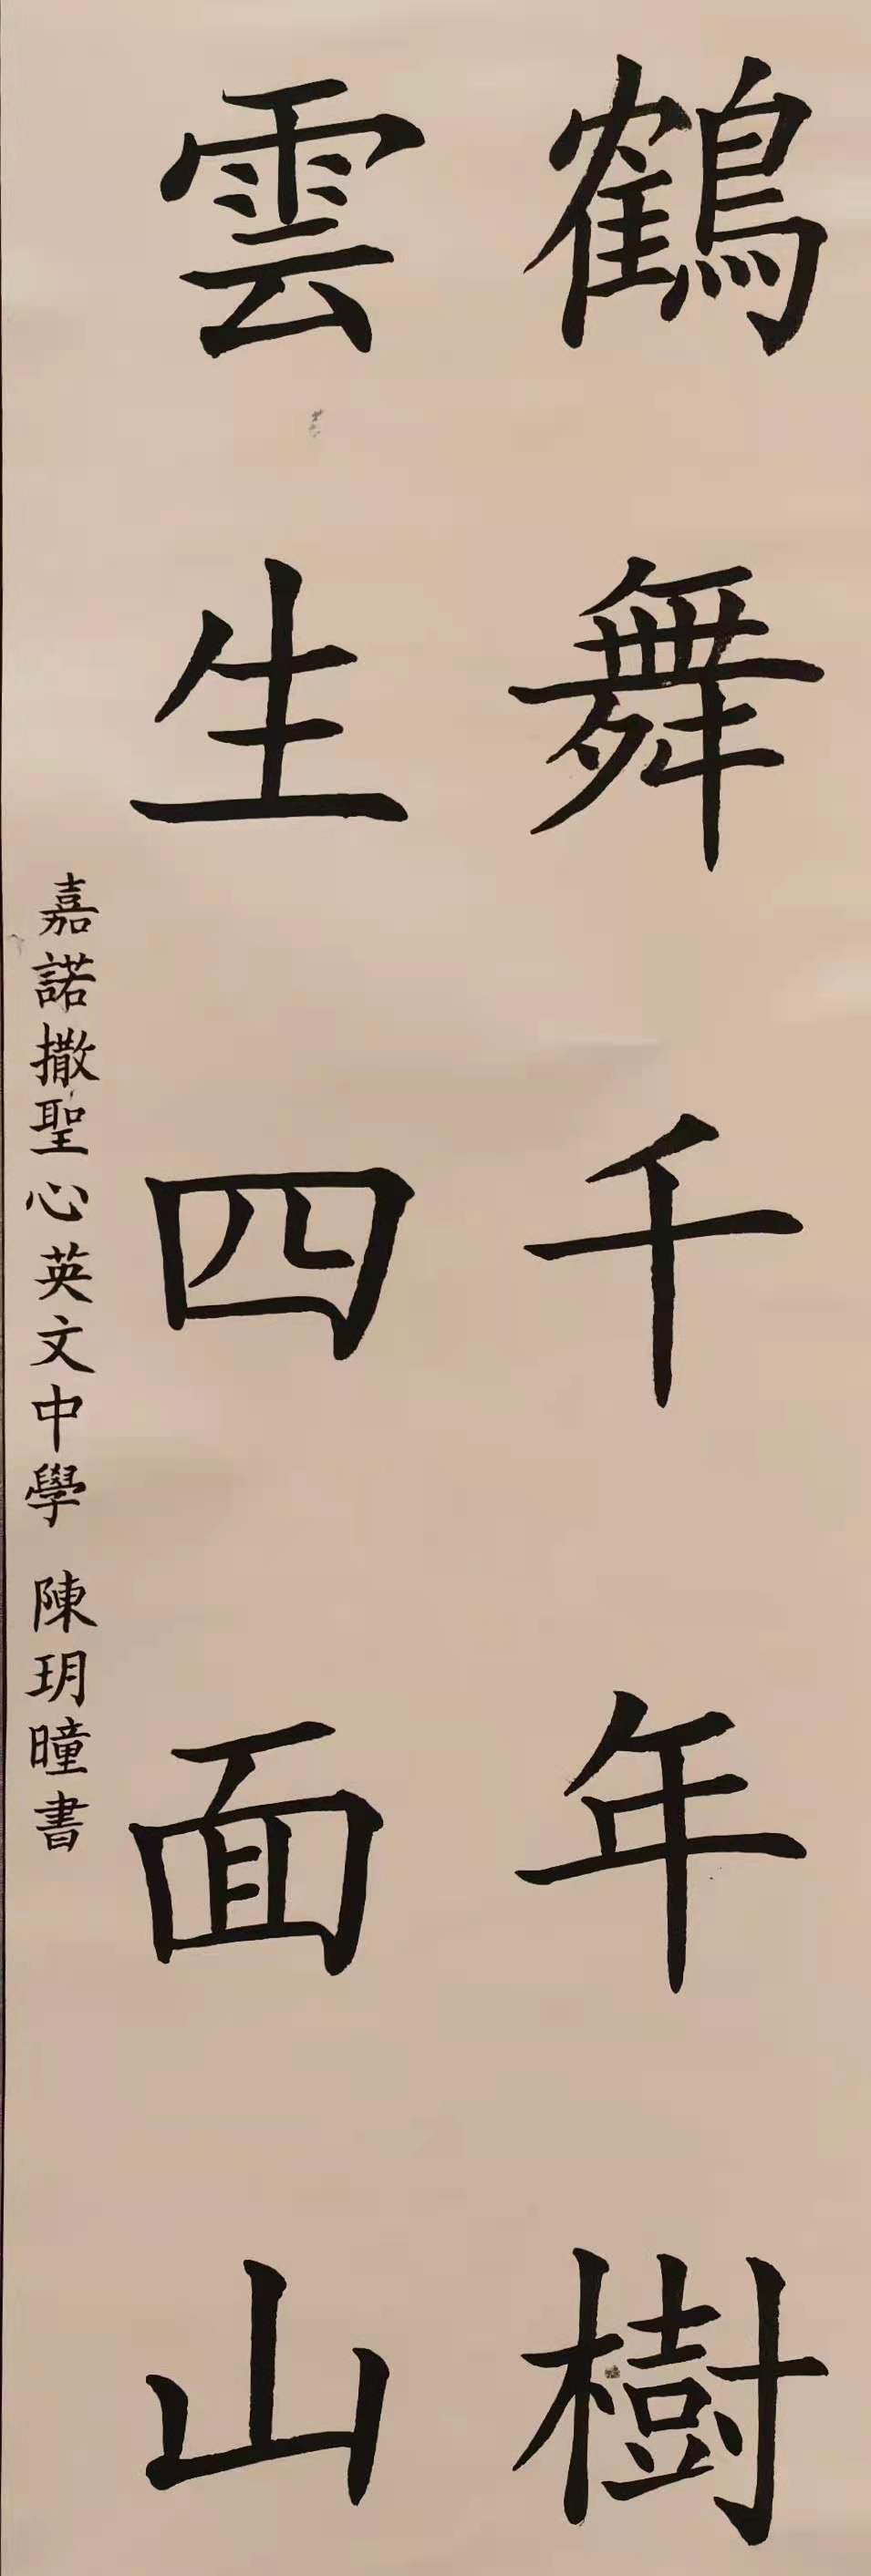 鶴舞千年樹
雲生四面山
嘉諾撒聖心英文中學 陳玥曈書